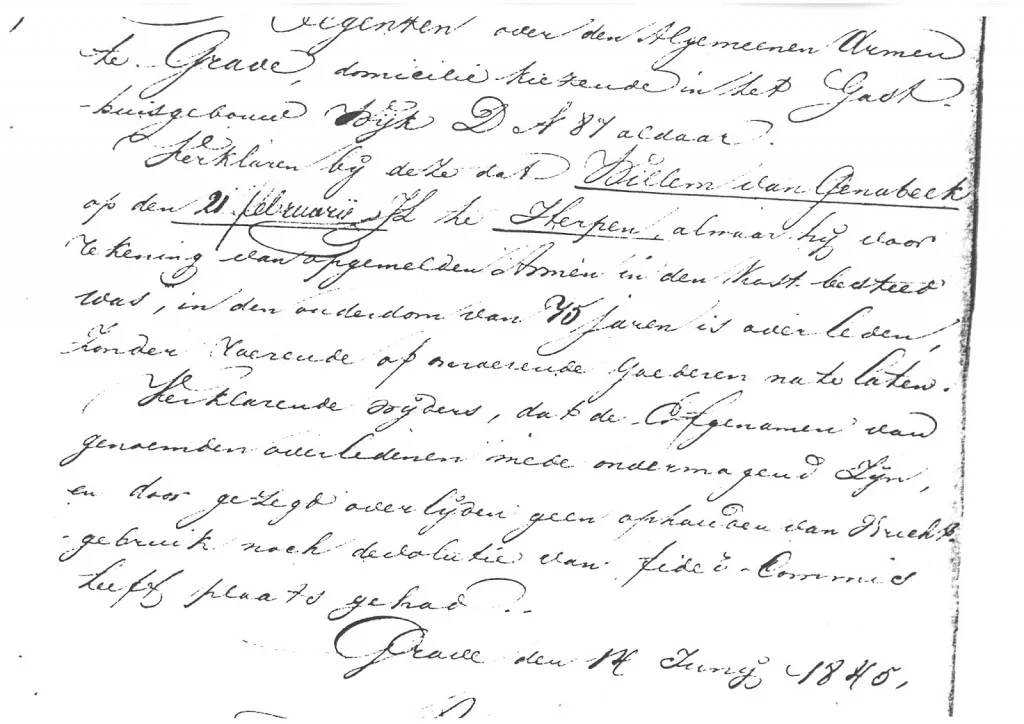 Regenten over den Algemeenen Armen
te Grave, domicilie kiezende in het Gast-
-huisgebouw Wijk D N 87 aldaar.
Verklaren bij deze dat Willem van Genabeek
op den 21 februarij Jl te Herpen, alwaar hij voor
rekening van opgemelden Armen in den kost besteed
was, in den ouderdom van 75 jaren is overleden,
zonder roerende of onroerende Goederen na te laten.
Verklarende wijders, dat de Erfgenamen van
genoemden overledenen mede onvermogend zijn,
en door gezegd overlijden geen ophouden van Vrucht-
-gebruik noch devolutie van fideï-Commis
heeft plaats gehad.
Grave den 14 Junij 1845.